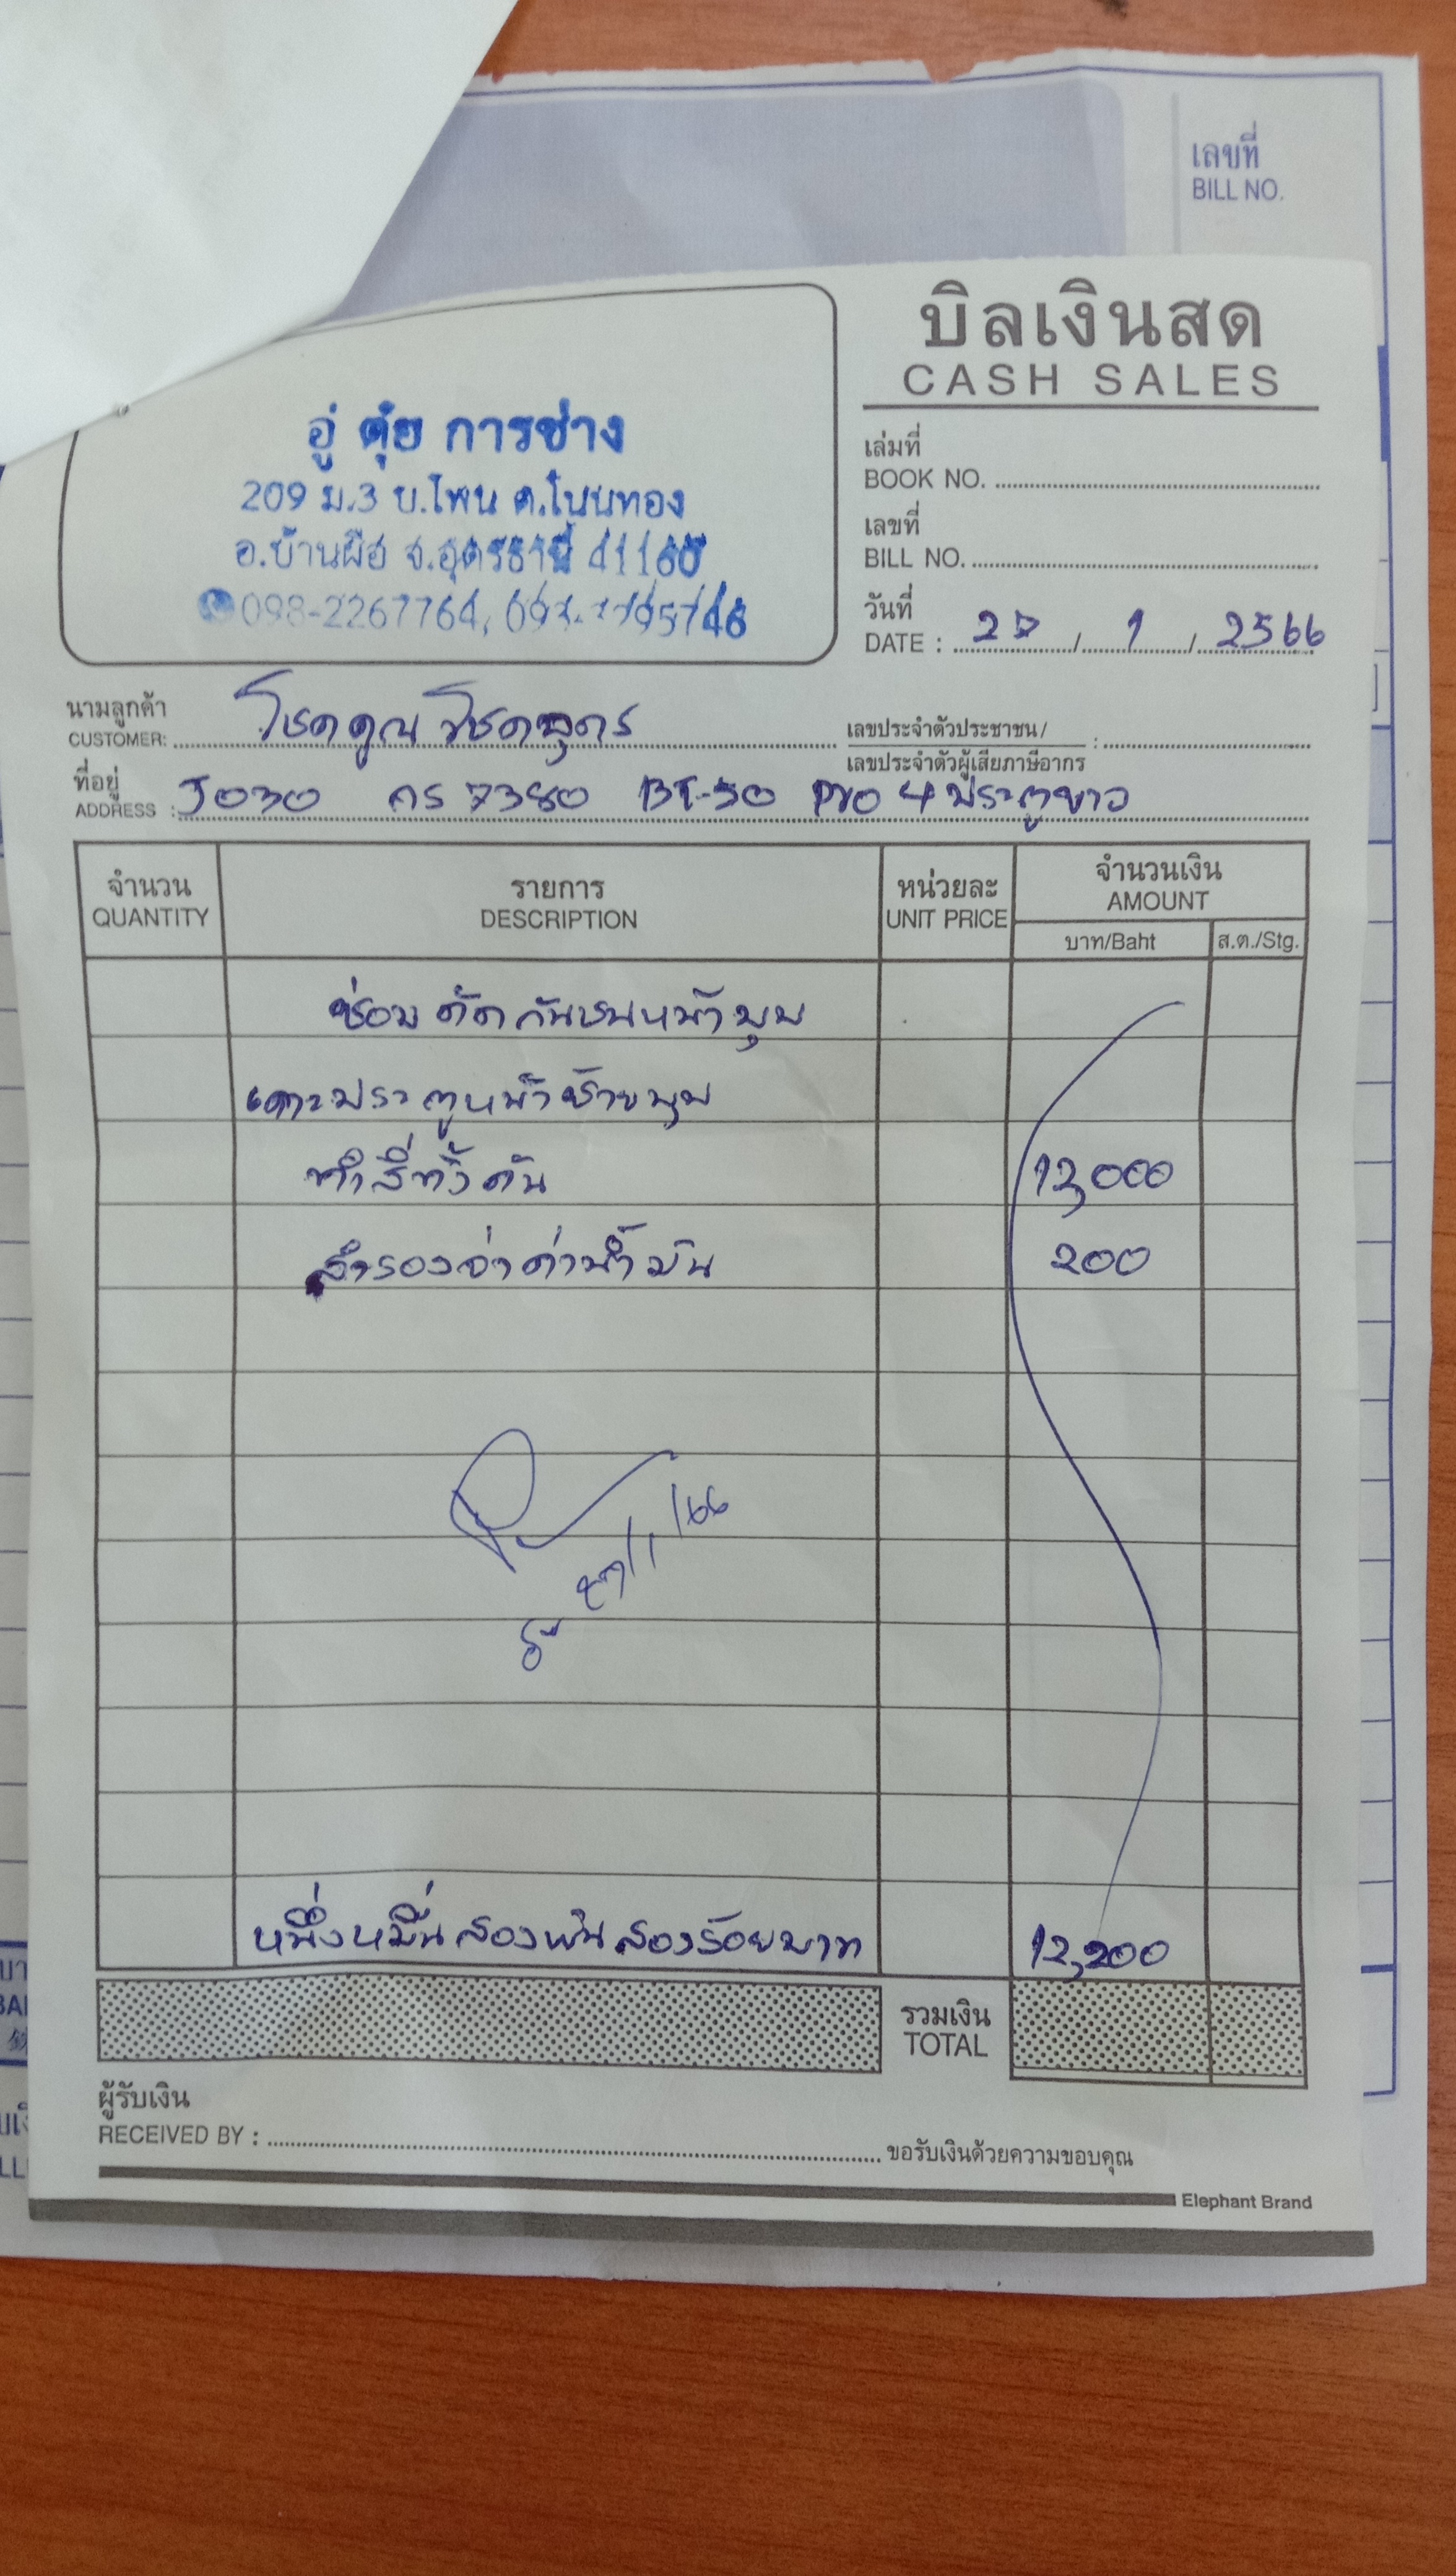 เลขที่
BILL NO.
บิลเงินสด
CASH SALES
อู่ ตุ๋ย การช่าง
209 ม.3 บ.โพน ต.โนนทอง
อ.บ้านผือ จ.อุดรธานี 41160
098-2267764,
เล่มที่
BOOK NO.
เลขที่
BILL NO.
วันที่
DATE : 27 / 1 / 2566
นามลูกค้า
CUSTOMER: โชคคูณโชคอุดร
เลขประจำตัวประชาชน/
เลขประจำตัวผู้เสียภาษีอากร :
ที่อยู่
ADDRESS : J030 กร 7380 BT-50 Pro 4 ประตูขาว
จำนวน
QUANTITY
รายการ
DESCRIPTION
หน่วยละ
UNIT PRICE
จำนวนเงิน
AMOUNT
บาท/Baht
ส.ต./Stg.
ซ่อม ดัด กันชนหน้าบุบ
เคาะประตูหน้าซ้ายบุบ
ทำสีทั้งคัน 12,000
สำรองจ่าค่าน้ำมัน 200
27/1/66
หนึ่งหมื่นสองพันสองร้อยบาท 12,200
รวมเงิน
TOTAL
ผู้รับเงิน
RECEIVED BY : ขอรับเงินด้วยความขอบคุณ
Elephant Brand